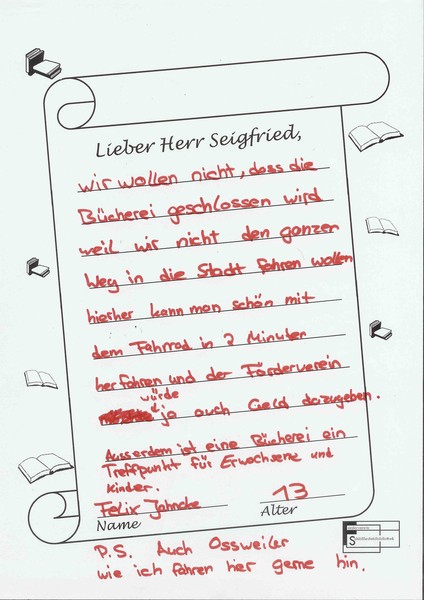 Lieber Herr Seigfried,
wir wollen nicht, dass die
Bücherei geschlossen wird
weil wir nicht den ganzen
Weg in die Stadt fahren wollen
hierher kann man schön mit
dem Fahrrad in 2 Minuten
her fahren und der Förderverein
würde
ja auch Geld dazugeben.
Ausserdem ist eine Bücherei ein
Treffpunkt für Erwachsene und
Kinder.
Felix Jahncke 13
Name Alter
P.S. Auch Ossweiler
wie ich fahren hier gerne hin.